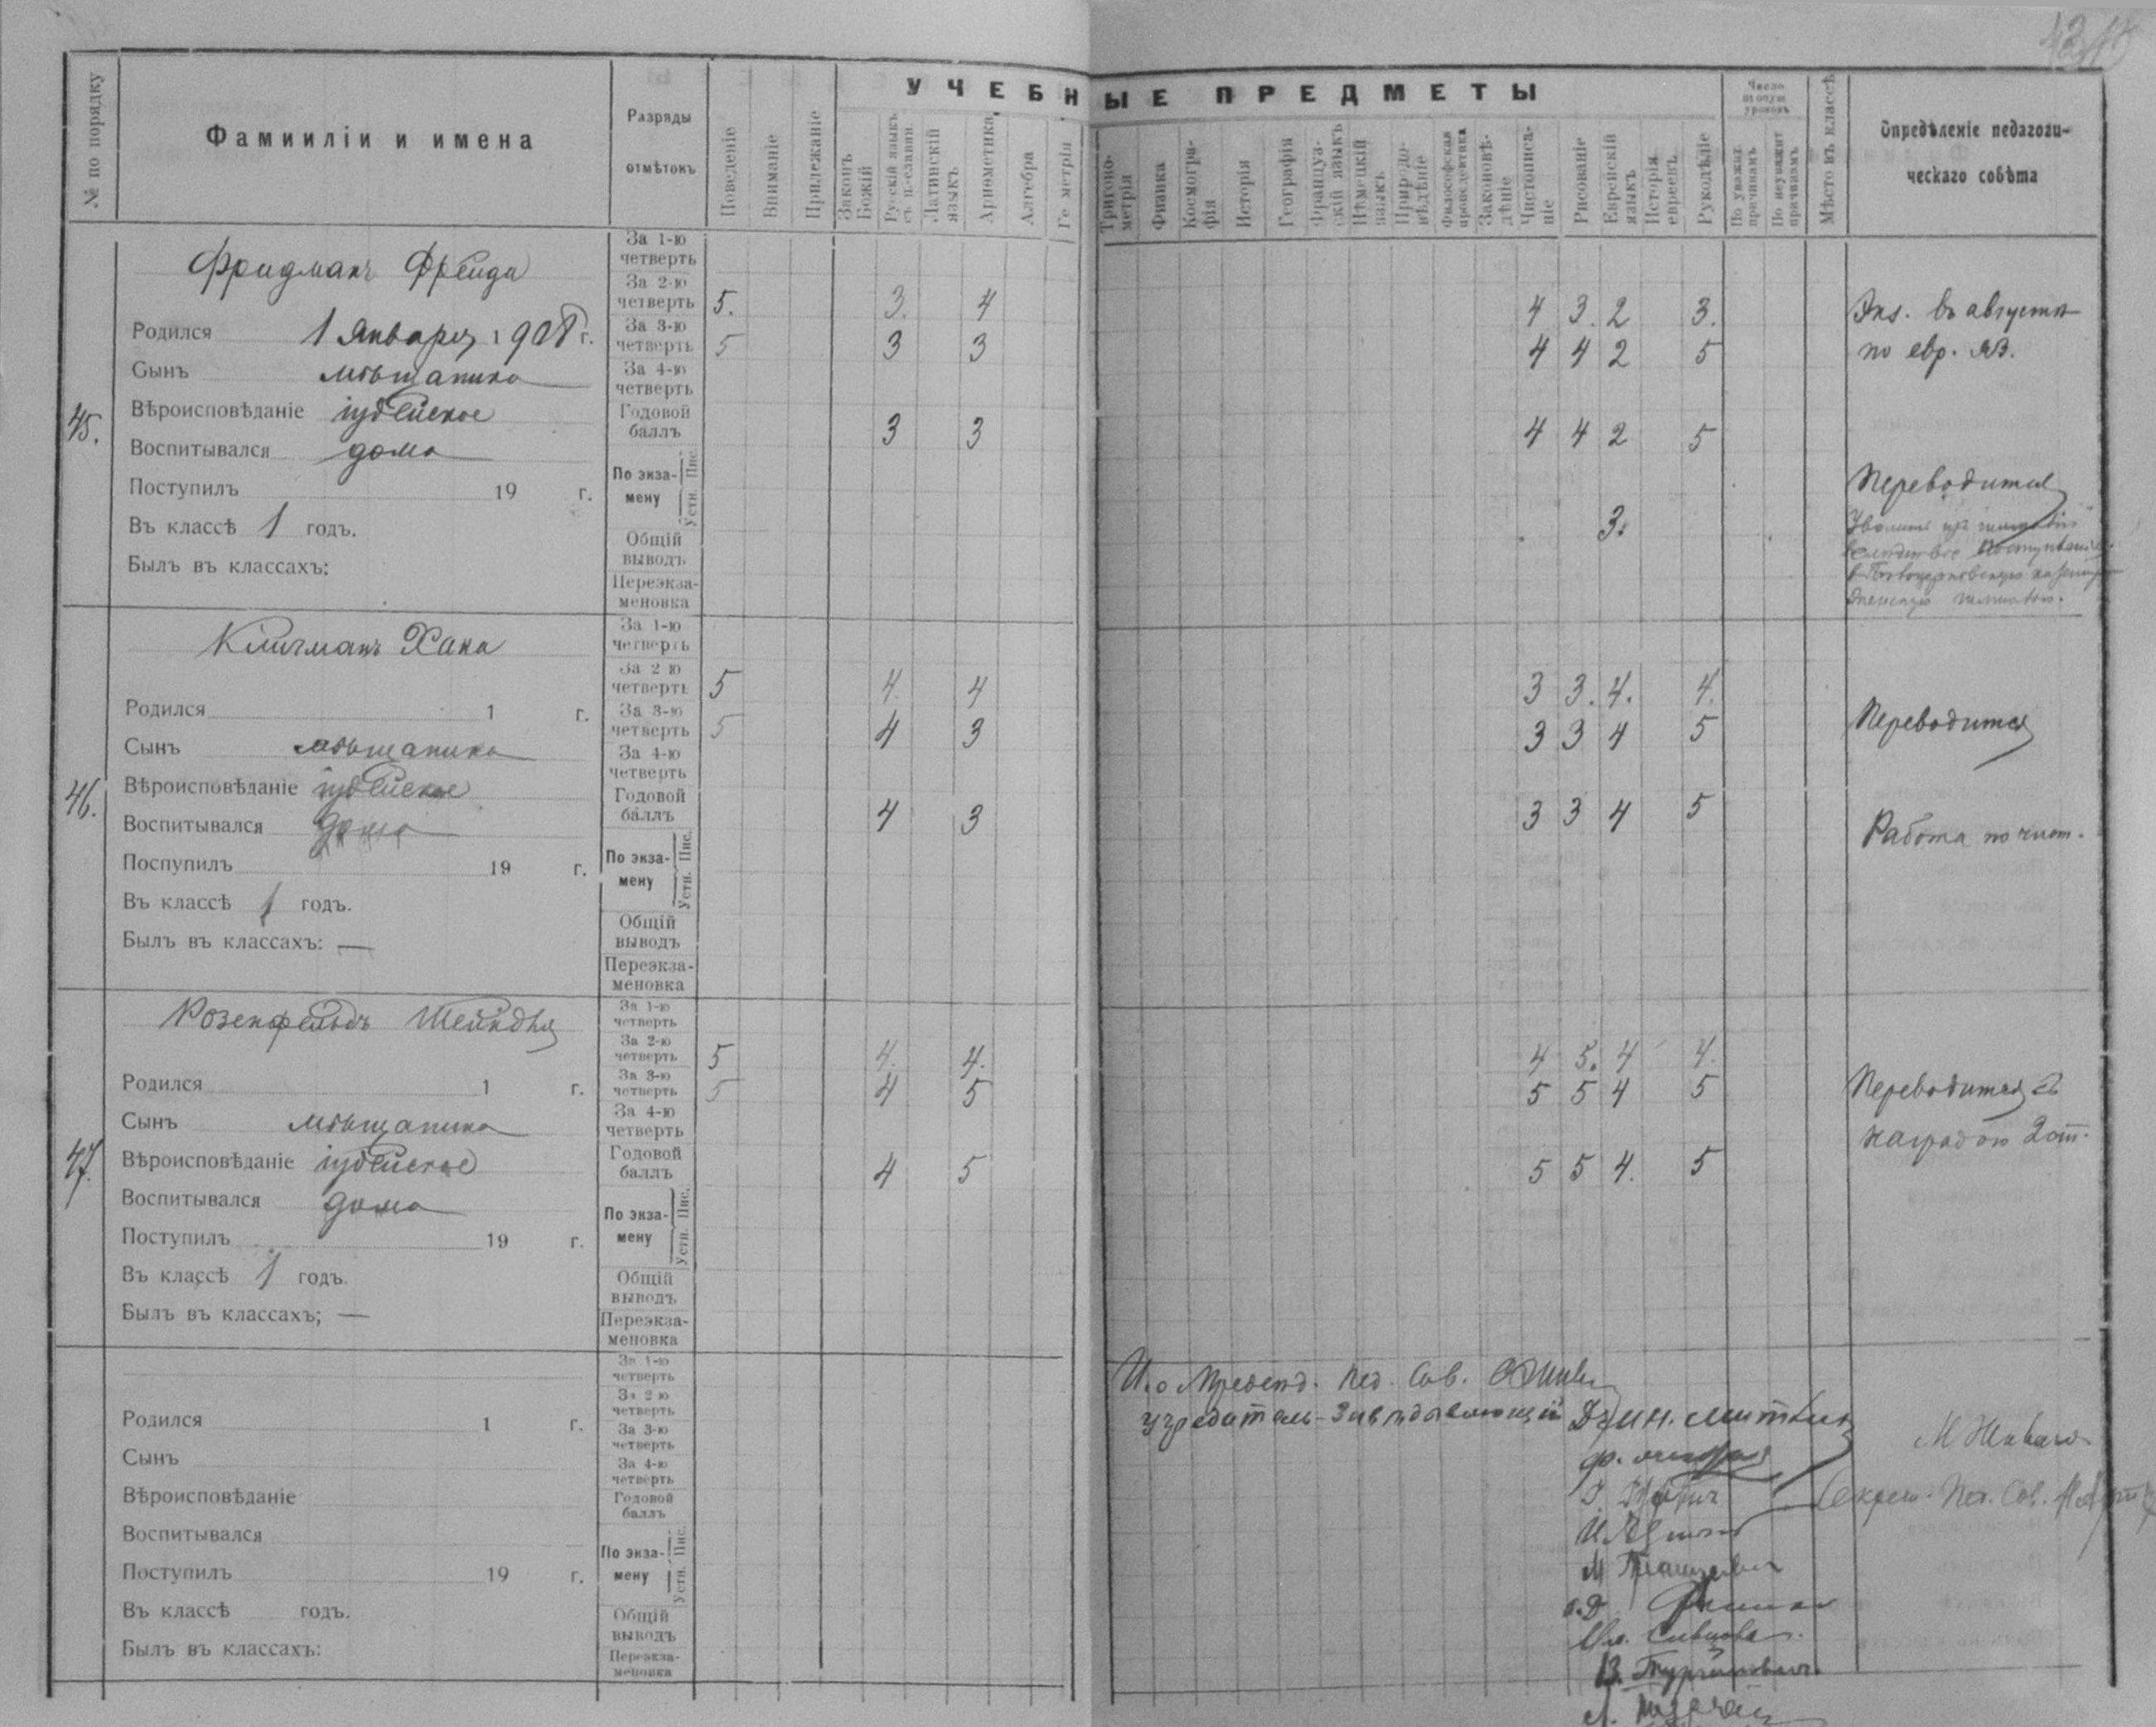 УЧЕБНЫЕ ПРЕДМЕТЫ
№ по порядку
Фамииліи и имена
Разряды
отмѣтокъ
Поведеніе
Вниманіе
Прилежаніе
Законъ Божій
Русскій языкъ съ ц.-славян.
Латинскій языкъ
Ариөметика
Алгебра
Геометрія
Тригоно-метрія
Физика
Космогра-фія
Исторія
Географія
Француз-скій языкъ
Нѣмецкій языкъ
Природо-вѣдѣніе
Философская пропедевтика
Законовѣ-дѣніе
Чистописа-ніе
Рисованіе
Еврейскій языкъ
Исторія евреевъ
Рукодѣліе
Число пропущ. уроковъ
По уважит. причинамъ
По неуважит. причинамъ
Мѣсто въ классѣ
Опредѣленіе педагоги-
ческаго совѣта
45.
Фридманъ Фрейда
Родился 1 Января 1908 г.
Сынъ мѣщанина
Вѣроисповѣданіе іудейское
Воспитывался дома
Поступилъ 19 г.
Въ классѣ 1 годъ.
Былъ въ классахъ:
За 1-ю четверть
За 2-ю четверть 5. 3. 4 4 3. 2 3.
За 3-ю четверть 5 3 3 4 4 2 5
За 4-ю четверть
Годовой баллъ 3 3 4 4 2 5
По экза-мену Пис. Устн. 3.
Общій выводъ
Переэкза-меновка
Экз. въ августѣ
по евр. яз.
Переводится
46.
Клигманъ Хана
Родился 1 г.
Сынъ мѣщанина
Вѣроисповѣданіе іудейское
Воспитывался дома
Поспупилъ 19 г.
Въ классѣ 1 годъ.
Былъ въ классахъ: —
За 1-ю четверть
За 2-ю четверть 5 4. 4 3 3. 4. 4.
За 3-ю четверть 5 4 3 3 3 4 5
За 4-ю четверть
Годовой баллъ 4 3 3 3 4 5
По экза-мену Пис. Устн.
Общій выводъ
Переэкза-меновка
Переводится
Работа по чист.
47.
Розенфельдъ Шейндля
Родился 1 г.
Сынъ мѣщанина
Вѣроисповѣданіе іудейское
Воспитывался дома
Поступилъ 19 г.
Въ классѣ 1 годъ.
Былъ въ классахъ; —
За 1-ю четверть
За 2-ю четверть 5 4. 4. 4 5. 4 4.
За 3-ю четверть 5 4 5 5 5 4 5
За 4-ю четверть
Годовой баллъ 4 5 5 5 4. 5
По экза-мену Пис. Устн.
Общій выводъ
Переэкза-меновка
Переводится съ
наградою 2 ст.
Родился 1 г.
Сынъ
Вѣроисповѣданіе
Воспитывался
Поступилъ 19 г.
Въ классѣ годъ.
Былъ въ классахъ:
За 1-ю четверть
За 2-ю четверть
За 3-ю четверть
За 4-ю четверть
Годовой баллъ
По экза-мену Пис. Устн.
Общій выводъ
Переэкза-меновка
И. о Предсѣд. Пед. Сов.
Учредитель-Завѣдывающій
Секрет. Пед. Сов.